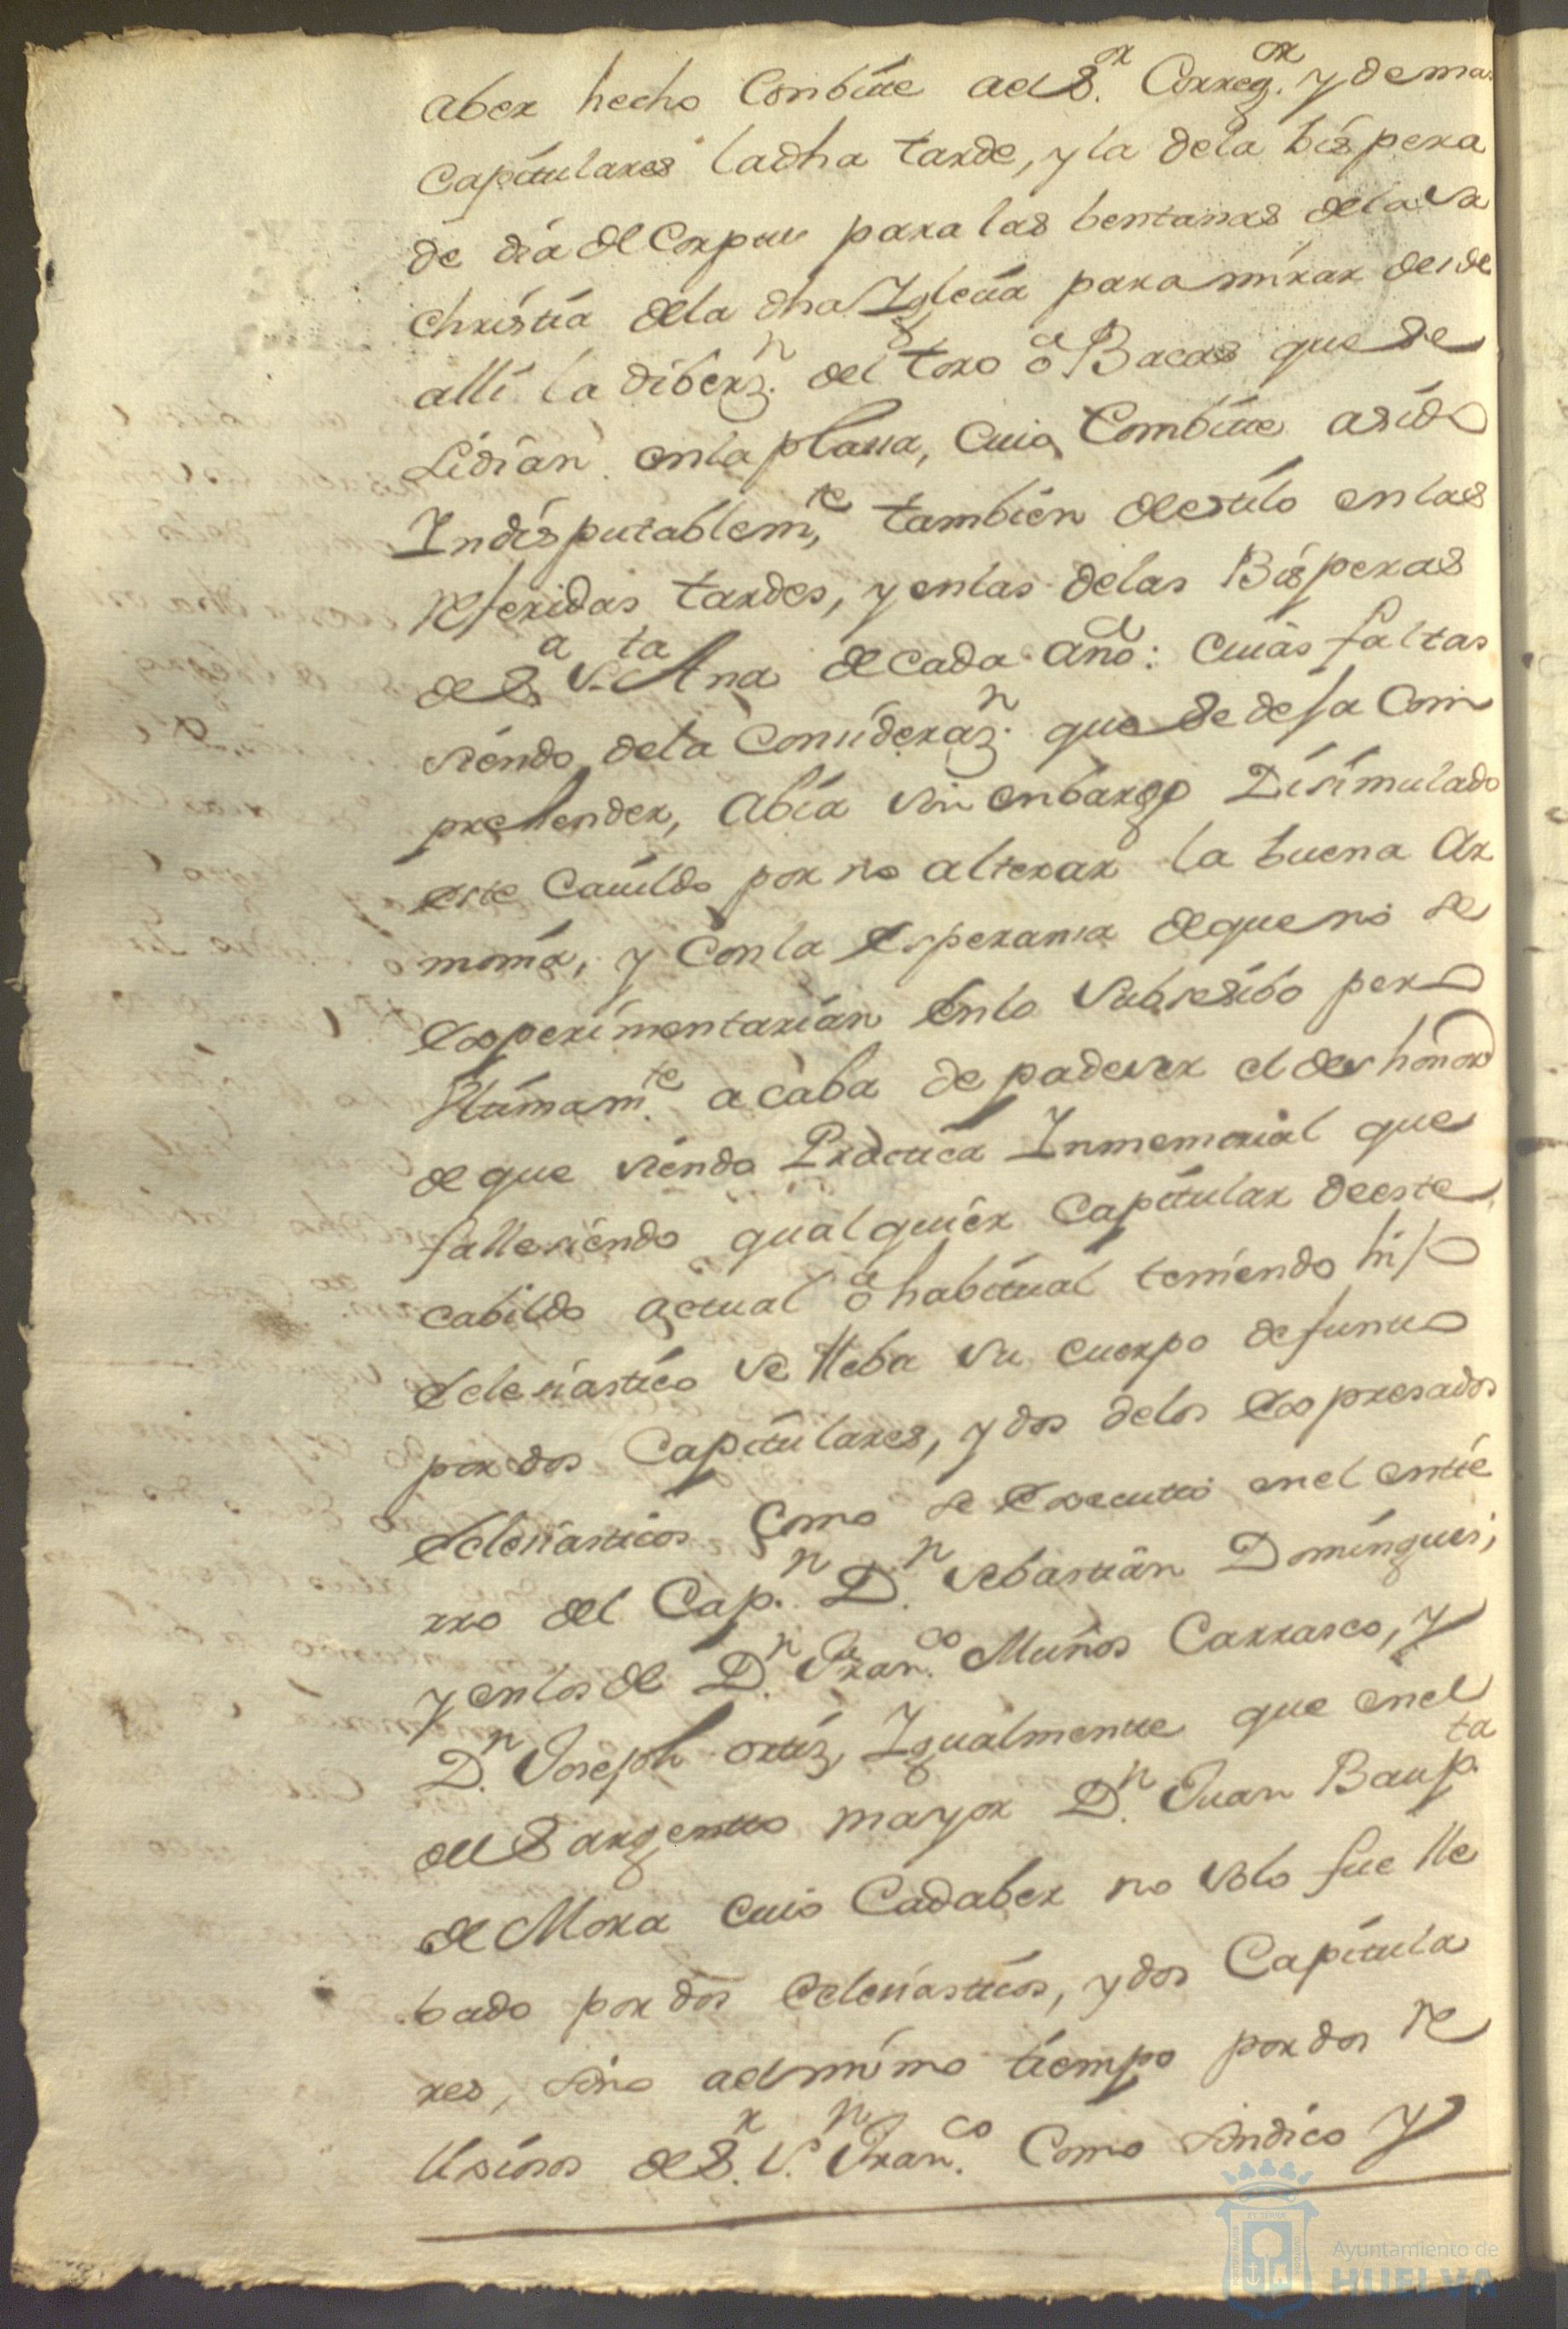 aber hecho Conbite ael S.or Correg.or y dema
Capitulares la dha tarde, y la dela bispera
de dia del Corpus para las bentanas dela sa
christia dela dha Iglecia para mirar desde
alli la diberz.n del toro o Bacas que se
Lidian en la plassa, cuio Combite asido
Indisputablem.te tambien de estilo en las
referidas tardes, y en las delas Bisperas
de S.a S.ta Ana de cada año: cuias faltas
siendo dela Consideraz.n que se desa Com
prehender, abia sin enbargo Disimulado
este Cauildo por no alterar la buena Ar
monia, y con la esperansa de que no se
experimentarian en lo Subsesibo pero
Vltimam.te acaba de padeser el deshonor
de que siendo Practica Inmemorial que
fallesiendo qualquier Capitular de este
cabildo actual o habitual teniendo hijo
eclesiastico se lleba su cuerpo defunto
por dos Capitulares, y dos delos expresados
eclesiasticos como se executo en el entie
rro del Cap.n D.n Sebastian Domingues,
y en los de D.n Fran.co Muños Carrasco, y
D.n Joseph ortiz, Igualmente que en el
del Sargento mayor D.n Juan Baup.ta
de Mora cuio Cadaber no solo fue lle
bado por dos eclesiasticos, y dos Capitula
res, sino ael mismo tiempo por dos Re
lixiosos de S.r S.n Fran.co Como sindico y
Ayuntamiento de
HUELVA